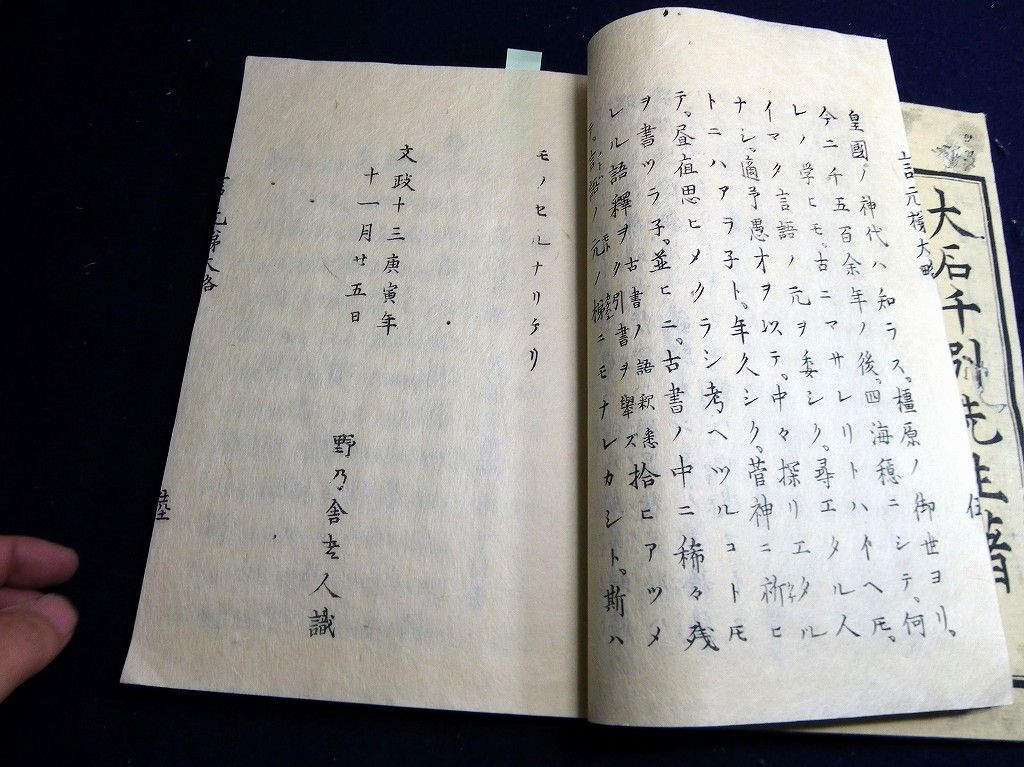 大石千引先生著
言元梯大略
皇國ノ神代ハ知ラス。橿原ノ御世ヨリ。
今ニ千五百余年ノ後。四海穏ニシテ。何
レノ学ヒモ。古ニマサレリトハイヘ𪜈。
イマタ言語ノ元ヲ委シク。尋エタル人
ナシ。適予愚才ヲ以テ。中々探リエ
トニハアラ子ト。年久シク。菅神ニ祈ヒ
テ。昼夜思ヒメクラシ考ヘツルコト𪜈
ヲ書ツラ子。並ヒニ。古書ノ中ニ稀々残
レル語釋ヲ古書ノ語釈悉ク引書ヲ擧ズ拾ヒアツメ
テ。言語ノ元ノ梯ニモナレカシト。斯ハ
モノセルナリケリ
文政十三庚寅年
十一月廿五日
野乃舎老人識
言元梯大略